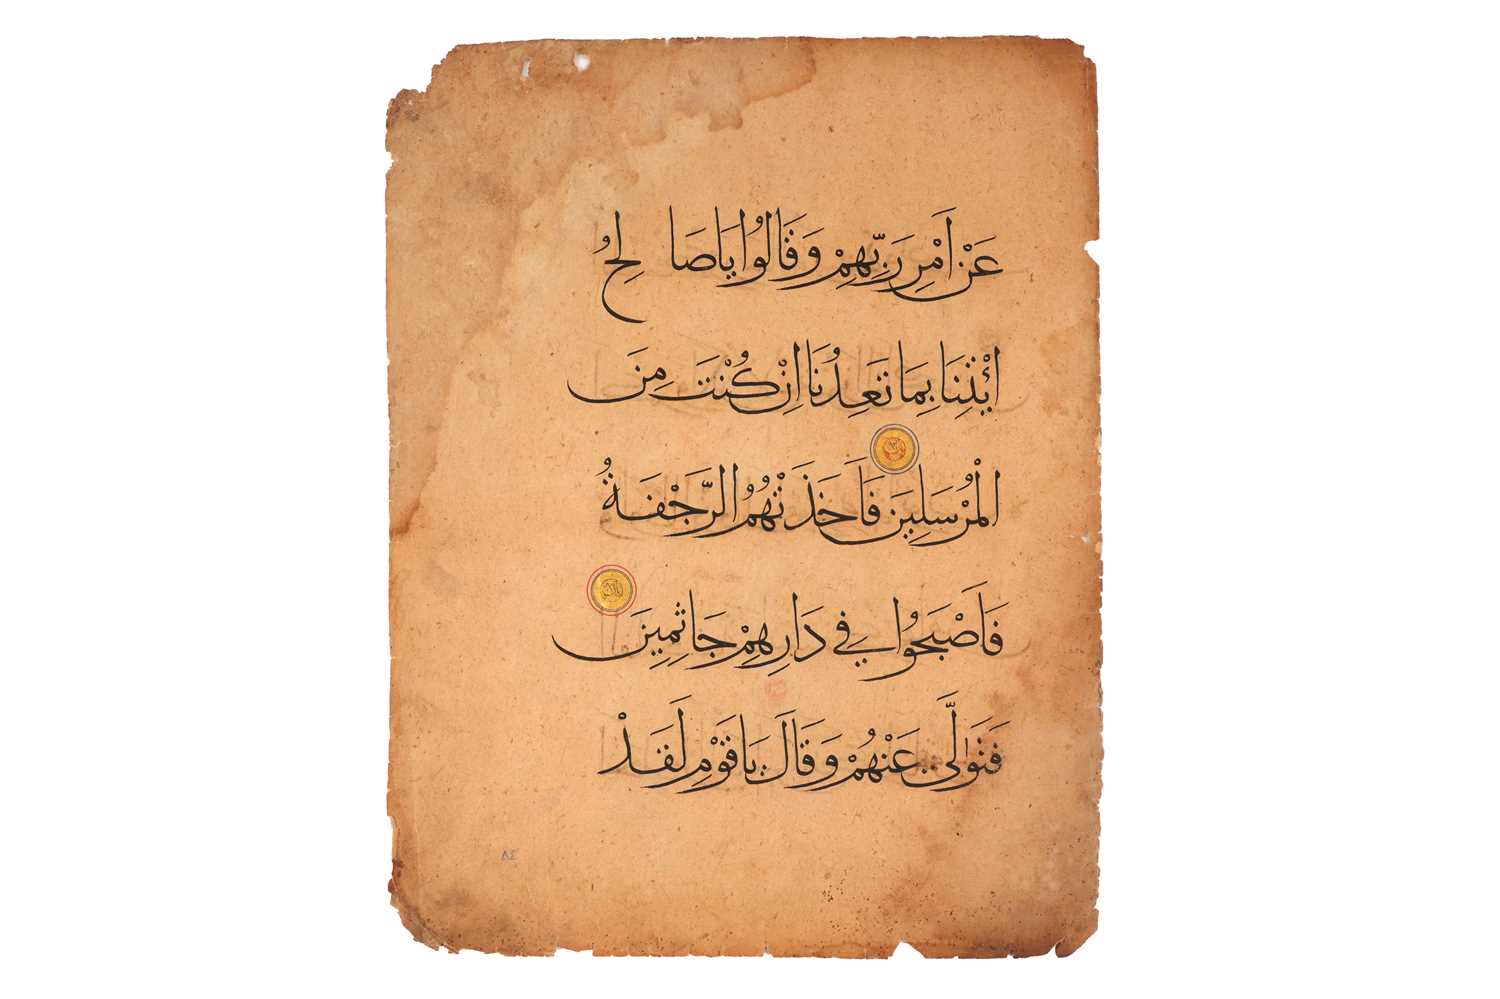 عَنْ اَمْرِ رَبِّهِمْ وَقَالُوا يَا صَا لِحُ
ائْتِنَا بِمَا تَعِدُنَا اِنْ كُنْتَ مِنَ
الْمُرْسَلِينَ فَاَخَذَتْهُمُ الرَّجْفَةُ
فَاَصْبَحُوا فِي دَارِهِمْ جَاثِمِينَ
فَتَوَلَّى عَنْهُمْ وَقَالَ يَا قَوْمِ لَقَدْ
٨٤